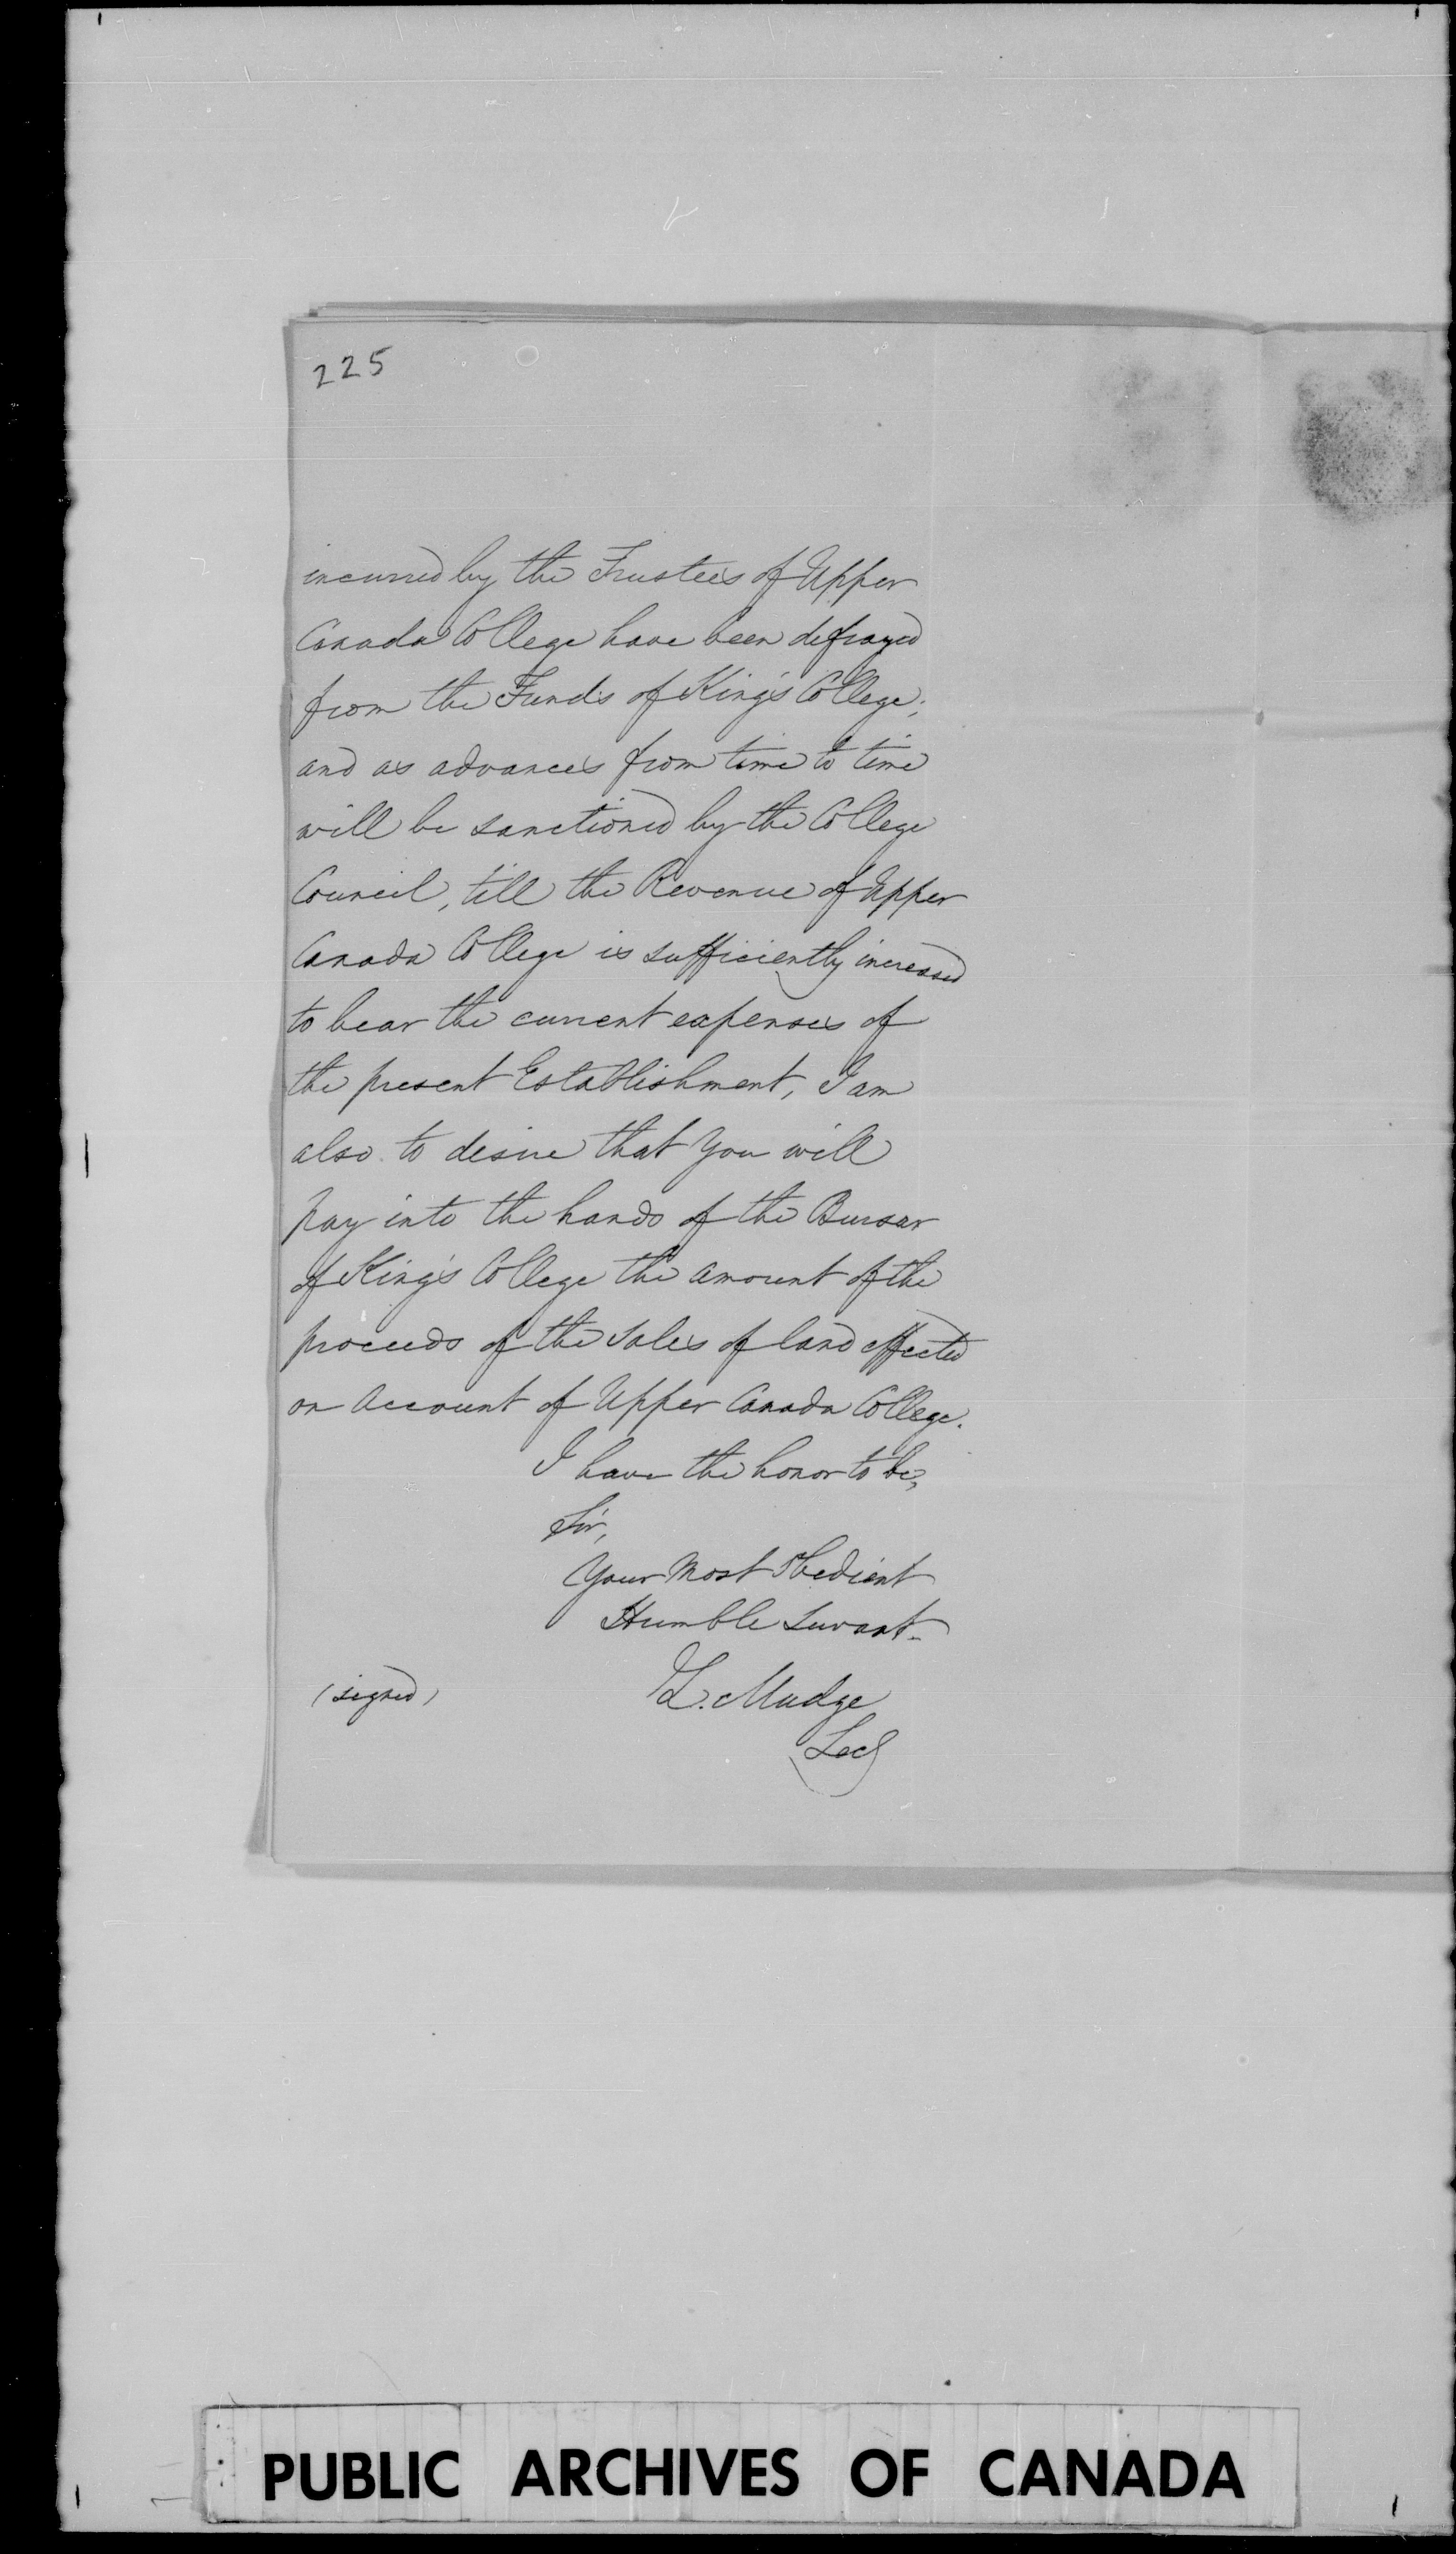 225
incurred by the Trustees of Upper
Canada College have been defrayed
from the Funds of King's College;
and as advances from time to time
will be sanctioned by the College
Council, till the Revenue of Upper
Canada College is sufficiently increased
to bear the current expenses of
the present Establishment, I am
also to desire that you will
pay into the hands of the Bursar
of King's College the amount of the
proceeds of the sales of land effected
on account of Upper Canada College.
I have the honor to be,
Sir,
Your Most Obedient
Humble Servant.
(signed) Z. Mudge
Sec
PUBLIC ARCHIVES OF CANADA